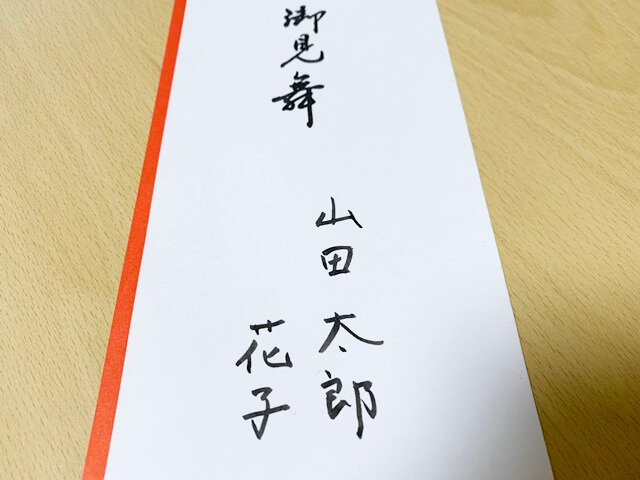 御見舞
山田 太郎
花子